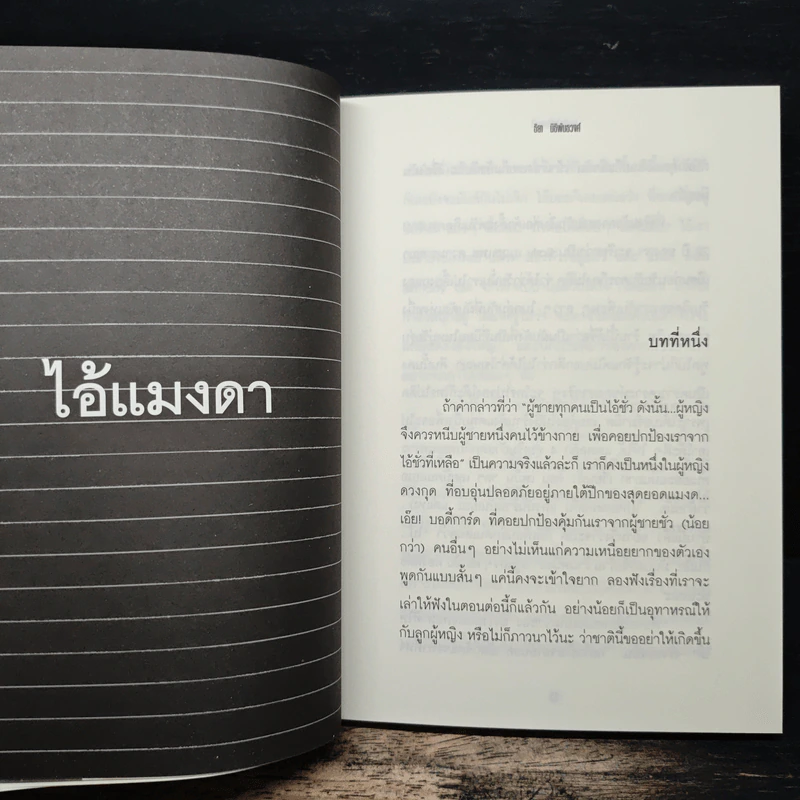 ไอ้แมงดา
บทที่หนึ่ง
ถ้าคำกล่าวที่ว่า "ผู้ชายทุกคนเป็นไอ้ชั่ว ดังนั้น...ผู้หญิง
จึงควรหนีบผู้ชายหนึ่งคนไว้ข้างกาย เพื่อคอยปกป้องเราจาก
ไอ้ชั่วที่เหลือ" เป็นความจริงแล้วล่ะก็ เราก็คงเป็นหนึ่งในผู้หญิง
ดวงกุด ที่อบอุ่นปลอดภัยอยู่ภายใต้ปีกของสุดยอดแมงด...
เอ๊ย! บอดี้การ์ด ที่คอยปกป้องคุ้มกันเราจากผู้ชายชั่ว (น้อย
กว่า) คนอื่นๆ อย่างไม่เห็นแก่ความเหนื่อยยากของตัวเอง
พูดกันแบบสั้นๆ แค่นี้คงจะเข้าใจยาก ลองฟังเรื่องที่เราจะ
เล่าให้ฟังในตอนต่อนี้ก็แล้วกัน อย่างน้อยก็เป็นอุทาหรณ์ให้
กับลูกผู้หญิง หรือไม่ก็ภาวนาไว้นะ ว่าชาตินี้ขออย่าให้เกิดขึ้น